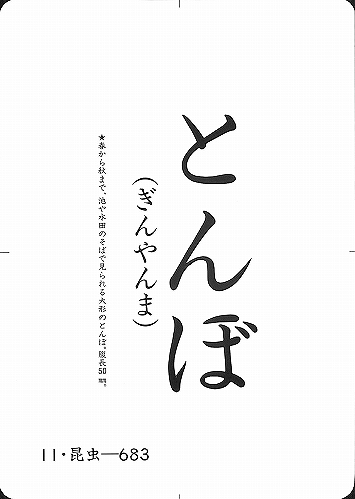 とんぼ
(ぎんやんま)
★春から秋まで、池や水田のそばで見られる大形のとんぼ。腹長50mm。
11・昆虫—683